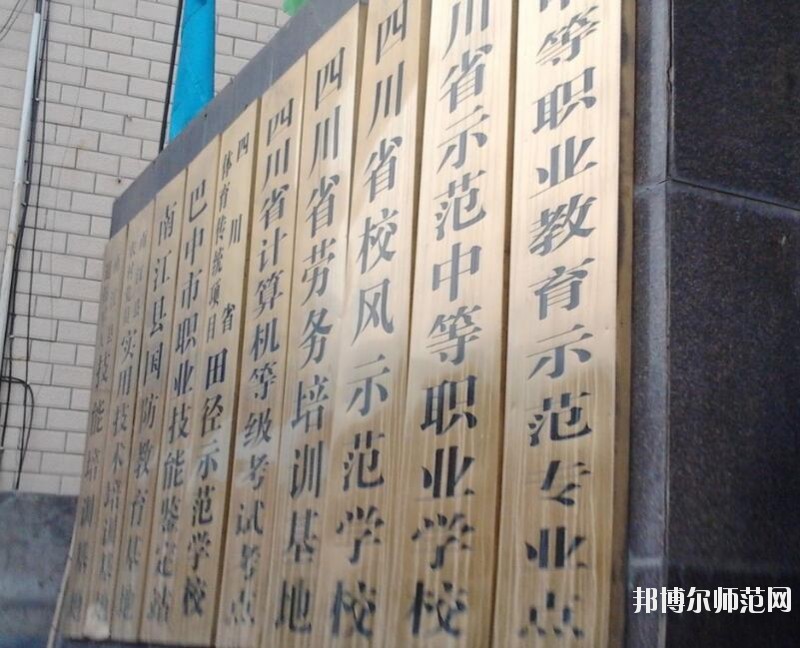 中等职业教育示范专业点
川省示范中等职业学校
四川省校风示范学校
四川省劳务培训基地
四川省计算机等级考试考点
四川省
体育传统项目
田径示范学校
巴中市职业技能鉴定站
南江县国防教育基地
实用技术培训基地
技能培训基地
邦博尔师范网